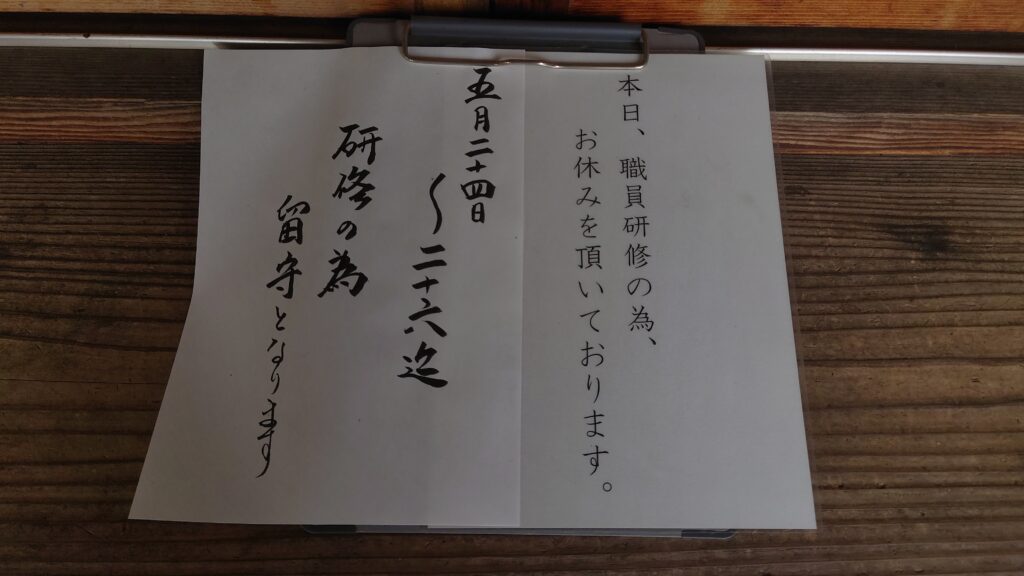 本日、職員研修の為、
お休みを頂いております。
五月二十四日
〜二十六迄
研修の為
留守となります